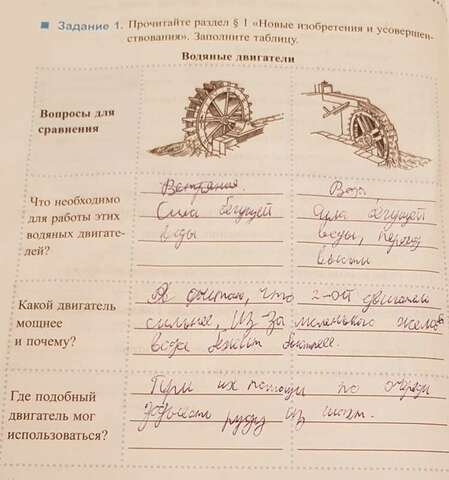 Задание 1. Прочитайте раздел § 1 «Новые изобретения и усовершен-
ствования». Заполните таблицу.
Водяные двигатели
Вопросы для
сравнения
Что необходимо
для работы этих
водяных двигате-
лей?
Сила бегущей
воды
Вода
Сила бегущей
воды, перепад
высоты
Какой двигатель
мощнее
и почему?
Я считаю, что 2-ой двигатель
сильнее, Из-за маленького желоба
вода бежит быстрее.
Где подобный
двигатель мог
использоваться?
При их помощи по очереди
добывали руду из шахт.